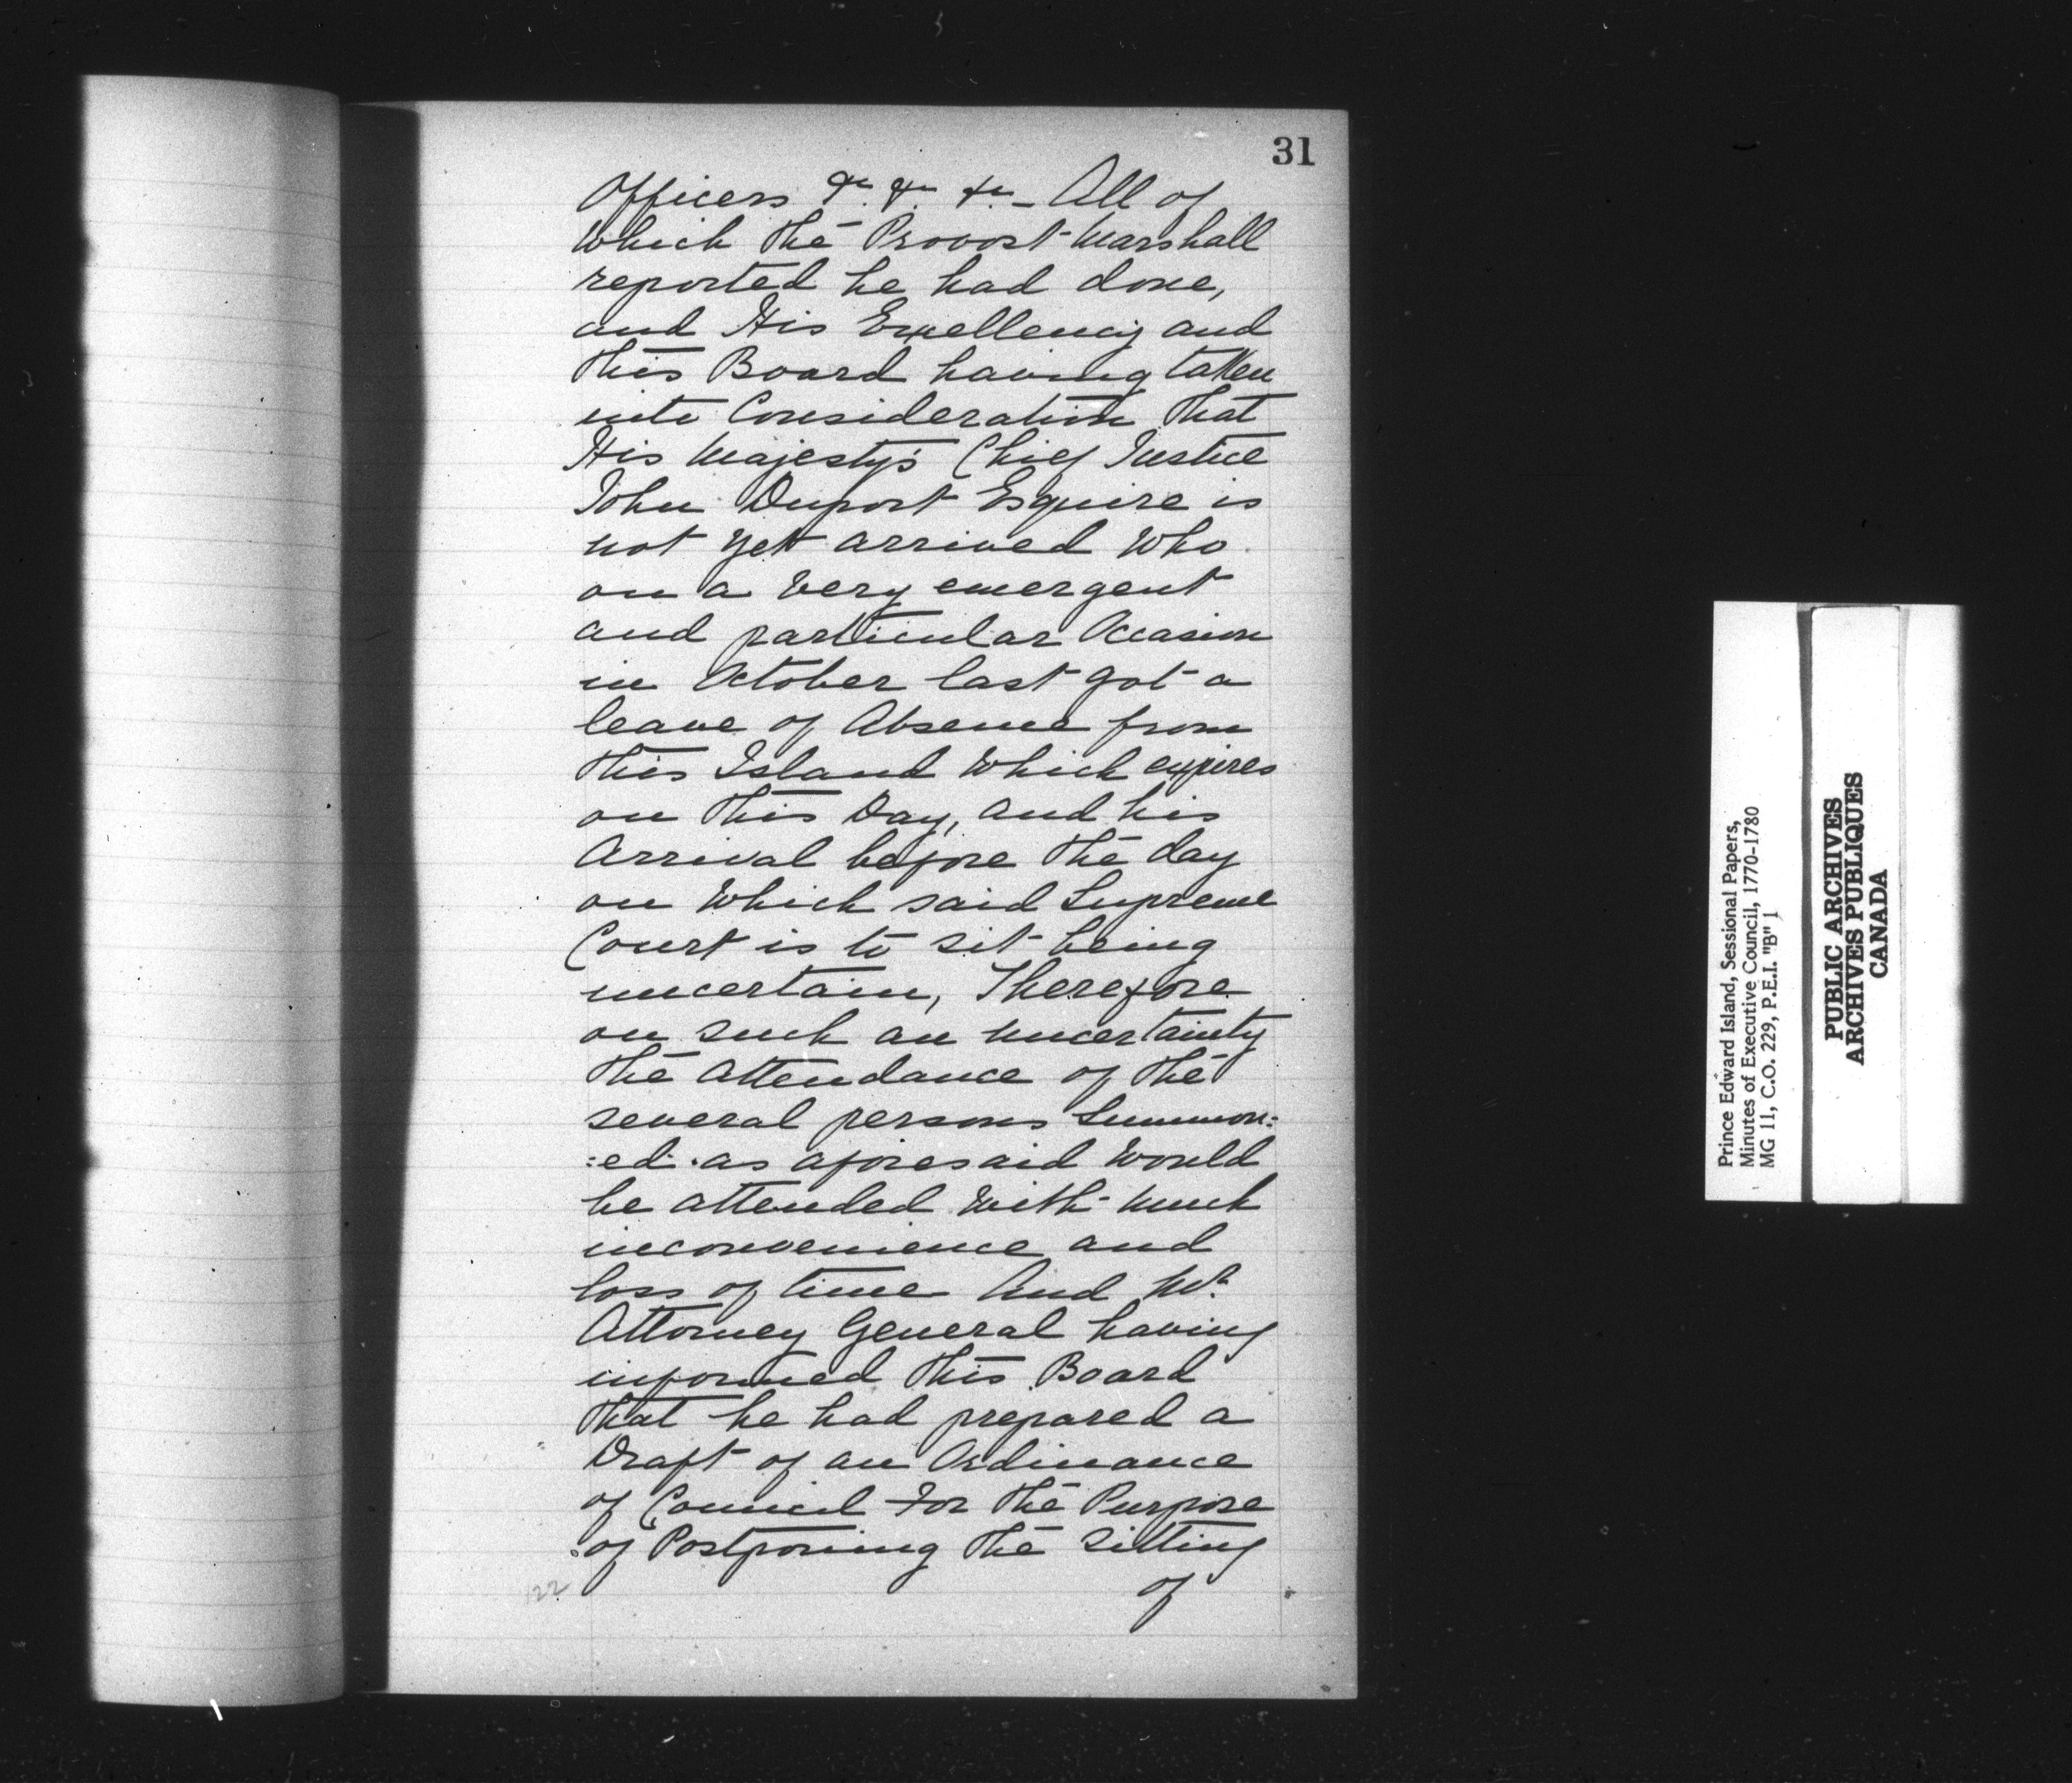 31
Officers &c. &c. &c. _ All of
which the Provost-Marshall
reported he had done,
and His Excellency and
this Board having taken
into Consideration that
His Majesty's Chief Justice
John Duport Esquire is
not yet arrived who
on a very emergent
and particular Occasion
in October last got a
leave of Absence from
this Island which expires
on this Day, and his
Arrival before the day
on which said Supreme
Court is to sit being
uncertain, Therefore
on such an uncertainty
the attendance of the
several persons Summon:
:ed as aforesaid would
be attended with much
inconvenience and
loss of time And Mr.
Attorney General having
informed this Board
that he had prepared a
Draft of an Ordinance
of Council For the Purpose
of Postponing the sitting
of
122
Prince Edward Island, Sessional Papers,
Minutes of Executive Council, 1770-1780
MG 11, C.O. 229, P.E.I. "B" 1
PUBLIC ARCHIVES
ARCHIVES PUBLIQUES
CANADA